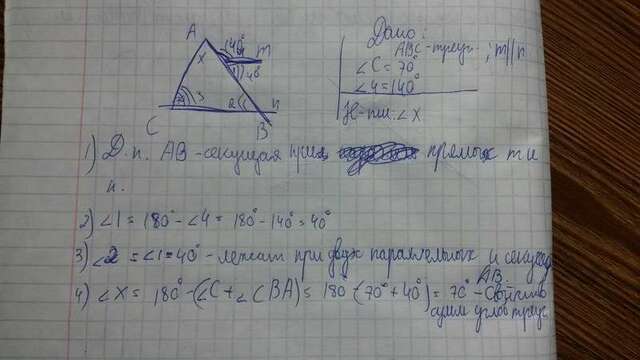 A
140°
m
x
1) 40°
3
2
n
C
B
Дано:
ABC-треуг. ; m||n
∠C=70°
∠4=140°
Н-ти: ∠x
1) Д.п. AB - секущая при прямых m и
n.
2) ∠1 = 180° - ∠4 = 180° - 140° = 40°
3) ∠2 = ∠1 = 40° - лежат при двух параллельных и секущей
AB.
4) ∠x = 180° - (∠C + ∠CBA) = 180° - (70° + 40°) = 70° - Свойство
сумм углов треуг.